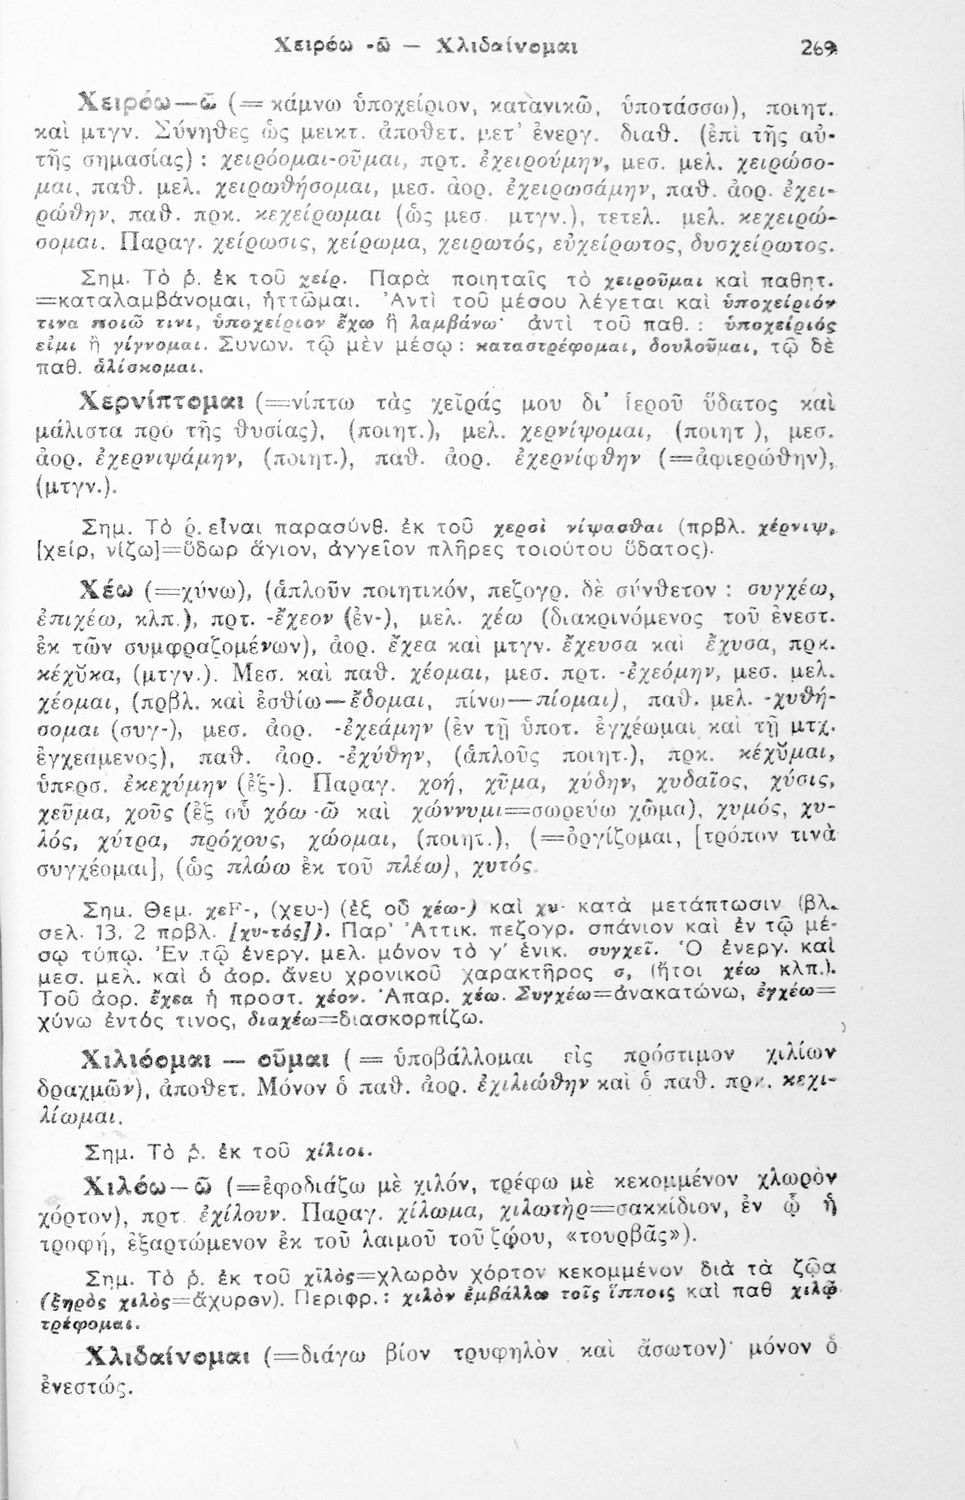 Χειρόω -ῶ — Χλιδαίνομαι 269
Χειρόω—ῶ (= κάμνω ὑποχείριον, κατανικῶ, ὑποτάσσω), ποιητ.
καὶ μτγν. Σύνηθες ὡς μεικτ. ἀποθετ. μετ' ἐνεργ. διαθ. (ἐπὶ τῆς αὐ-
τῆς σημασίας) : χειρόομαι-οῦμαι, πρτ. ἐχειρούμην, μεσ. μελ. χειρώσο-
μαι, παθ. μελ. χειρωθήσομαι, μεσ. ἀορ. ἐχειρωσάμην, παθ. ἀορ. ἐχει-
ρώθην, παθ. πρκ. κεχείρωμαι (ὡς μεσ. μτγν.), τετελ. μελ. κεχειρώ-
σομαι. Παραγ. χείρωσις, χείρωμα, χειρωτός, εὐχείρωτος, δυσχείρωτος.
Σημ. Τὸ ῥ. ἐκ τοῦ χείρ. Παρὰ ποιηταῖς τὸ χειροῦμαι καὶ παθητ.
=καταλαμβάνομαι, ἡττῶμαι. Ἀντὶ τοῦ μέσου λέγεται καὶ ὑποχείριόν
τινα ποιῶ τινι, ὑποχείριον ἔχω ἢ λαμβάνω· ἀντὶ τοῦ παθ. : ὑποχείριός
εἰμι ἢ γίγνομαι. Συνων. τῷ μὲν μέσῳ : καταστρέφομαι, δουλοῦμαι, τῷ δὲ
παθ. ἁλίσκομαι.
Χερνίπτομαι (=νίπτω τὰς χεῖράς μου δι' ἱεροῦ ὕδατος καὶ
μάλιστα πρὸ τῆς θυσίας), (ποιητ.), μελ. χερνίψομαι, (ποιητ ), μεσ.
ἀορ. ἐχερνιψάμην, (ποιητ.), παθ. ἀορ. ἐχερνίφθην (=ἀφιερώθην),
(μτγν.).
Σημ. Τὸ ῥ. εἶναι παρασύνθ. ἐκ τοῦ χερσὶ νίψασθαι (πρβλ. χέρνιψ,
[χείρ, νίζω]=ὕδωρ ἅγιον, ἀγγεῖον πλῆρες τοιούτου ὕδατος).
Χέω (=χύνω), (ἁπλοῦν ποιητικόν, πεζογρ. δὲ σύνθετον : συγχέω,
ἐπιχέω, κλπ.), πρτ. -ἔχεον (ἐν-), μελ. χέω (διακρινόμενος τοῦ ἐνεστ.
ἐκ τῶν συμφραζομένων), ἀορ. ἔχεα καὶ μτγν. ἔχευσα καὶ ἔχυσα, πρκ.
κέχῠκα, (μτγν.). Μεσ. καὶ παθ. χέομαι, μεσ. πρτ. -ἐχεόμην, μεσ. μελ.
χέομαι, (πρβλ. καὶ ἐσθίω—ἔδομαι, πίνω—πίομαι), παθ. μελ. -χυθή-
σομαι (συγ-), μεσ. ἀορ. -ἐχεάμην (ἐν τῇ ὑποτ. ἐγχέωμαι καὶ τῇ μτχ.
ἐγχεάμενος), παθ. ἀορ. -ἐχύθην, (ἁπλοῦς ποιητ.), πρκ. κέχῠμαι,
ὑπερσ. ἐκεχύμην (ἐξ-). Παραγ. χοή, χῦμα, χύδην, χυδαῖος, χύσις,
χεῦμα, χοῦς (ἐξ οὗ χόω -ῶ καὶ χώννυμι=σωρεύω χῶμα), χυμός, χυ-
λός, χύτρα, πρόχους, χώομαι, (ποιητ.), (=ὀργίζομαι, [τρόπον τινὰ
συγχέομαι], (ὡς πλώω ἐκ τοῦ πλέω), χυτός.
Σημ. Θεμ. χεF-, (χευ-) (ἐξ οὗ χέω-) καὶ χυ- κατὰ μετάπτωσιν (βλ.
σελ. 13, 2 πρβλ. [χυ-τός]). Παρ' Ἀττικ. πεζογρ. σπάνιον καὶ ἐν τῷ μέ-
σῳ τύπῳ. Ἐν τῷ ἐνεργ. μελ. μόνον τὸ γ' ἑνικ. συγχεῖ. Ὁ ἐνεργ. καὶ
μεσ. μελ. καὶ ὁ ἀορ. ἄνευ χρονικοῦ χαρακτῆρος σ, (ἤτοι χέω κλπ.).
Τοῦ ἀορ. ἔχεα ἡ προστ. χέον. Ἀπαρ. χέω. Συγχέω=ἀνακατώνω, ἐγχέω=
χύνω ἐντός τινος, διαχέω=διασκορπίζω.
Χιλιόομαι — οῦμαι ( = ὑποβάλλομαι εἰς πρόστιμον χιλίων
δραχμῶν), ἀποθετ. Μόνον ὁ παθ. ἀορ. ἐχιλιώθην καὶ ὁ παθ. πρκ. κεχι-
λίωμαι.
Σημ. Τὸ ῥ. ἐκ τοῦ χίλιοι.
Χιλόω—ῶ (=ἐφοδιάζω μὲ χιλόν, τρέφω μὲ κεκομμένον χλωρὸν
χόρτον), πρτ. ἐχίλουν. Παραγ. χίλωμα, χιλωτὴρ=σακκίδιον, ἐν ᾧ ἡ
τροφή, ἐξαρτώμενον ἐκ τοῦ λαιμοῦ τοῦ ζῴου, «τουρβᾶς»).
Σημ. Τὸ ῥ. ἐκ τοῦ χῑλὸς=χλωρὸν χόρτον κεκομμένον διὰ τὰ ζῷα
(ξηρὸς χιλὸς=ἄχυρον). Περιφρ.: χιλὸν ἐμβάλλω τοῖς ἵπποις καὶ παθ χιλῷ
τρέφομαι.
Χλιδαίνομαι (=διάγω βίον τρυφηλὸν καὶ ἄσωτον)· μόνον ὁ
ἐνεστώς.